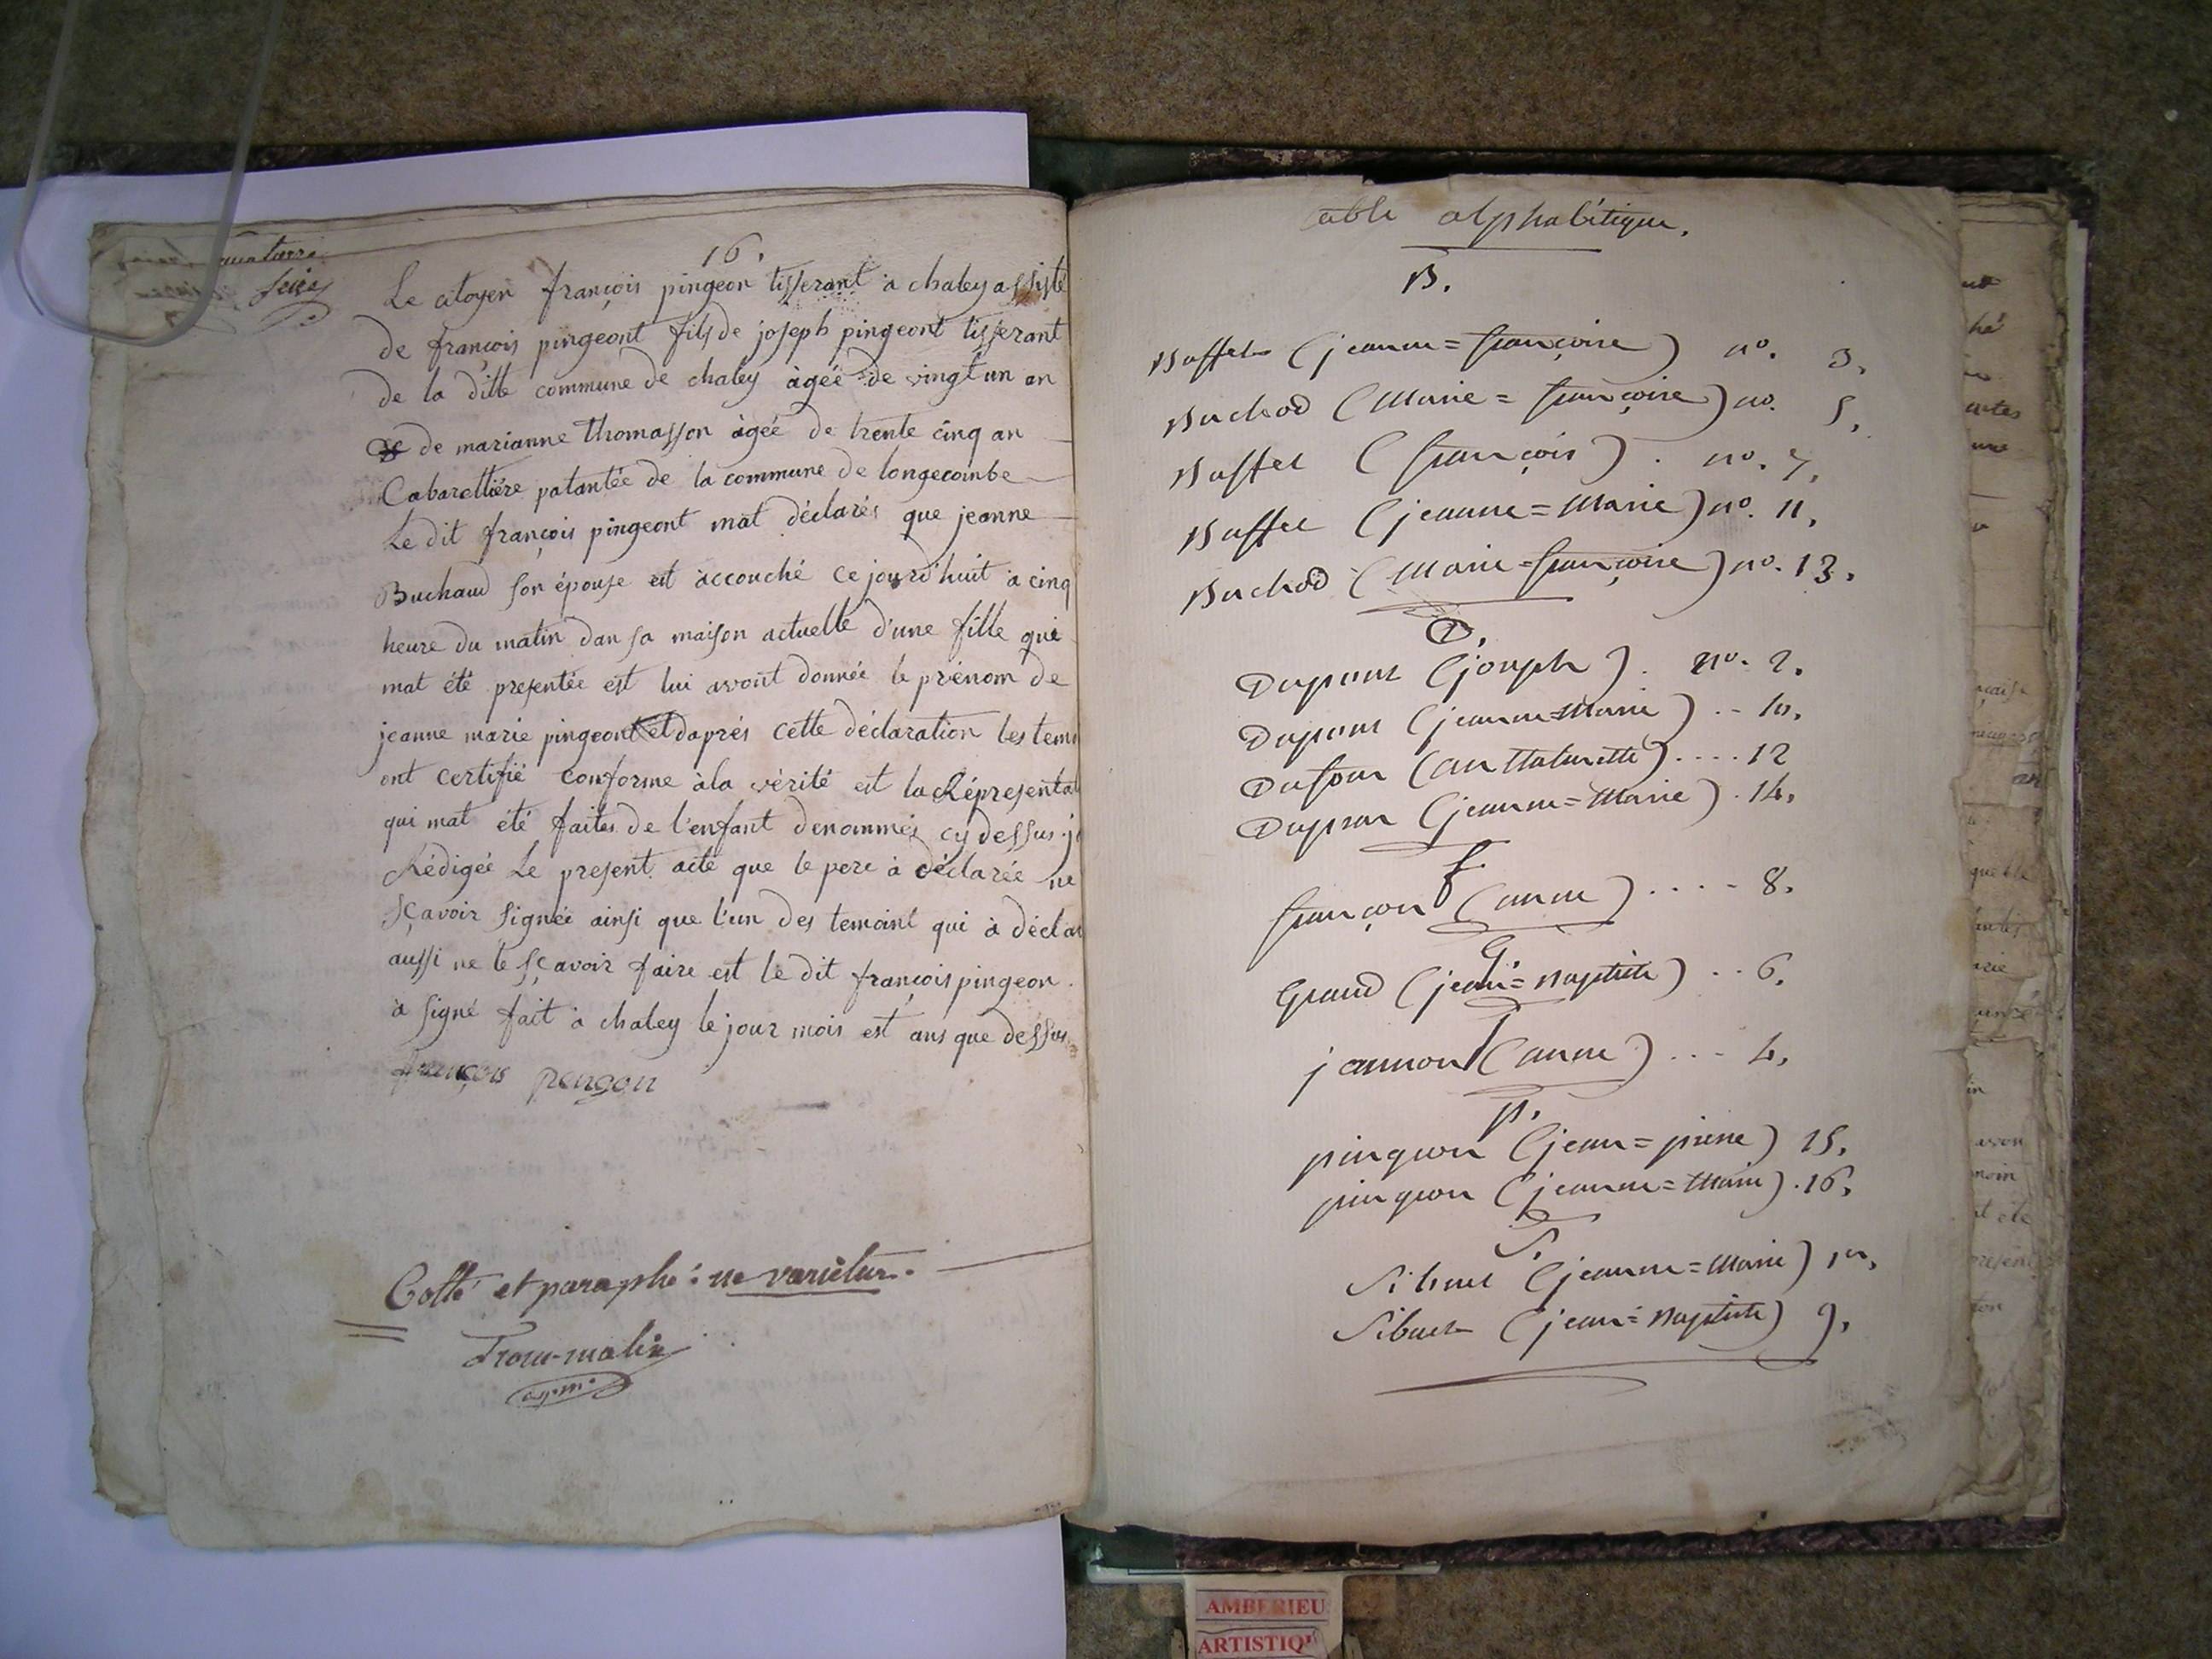 quatorze
seize
16.
Le citoyen françois pingeon tisserant à chaley assisté
de françois pingeont fils de joseph pingeont tisserant
de la ditte commune de chaley àgéé de vingt un an
de marianne thomasson àgéé de trente cinq an
Cabarettiére patantée de la commune de longecombe
Le dit françois pingeont mat déclarés que jeanne
Buchaud son épouse est àccouché ce jourd'huit à cinq
heure du matin dan sa maison actuelle d'une fille qui
mat été presentée est lui avont donnée le prénom de
jeanne marie pingeont et daprés cette déclaration les tem
ont certifié conforme à la vérité est la Répresentat
qui mat été faites de l'enfant denommés cy dessus j
Rédigée Le present acte que le pere à déclarée ne
sçavoir signée ainsi que l'un des temoint qui à déclar
aussi ne le sçavoir faire est le dit françois pingeon
à signé fait à chaley le jour mois est ans que dessus
françois pengon
Cotté et paraphé: ne varietur.
table alphabétique.
B.
Buffet (jeanne=françoise) no. 3.
Buchod (Marie=françoise) no. 5.
Buffet (françois). no. 7.
Buffet (jeanne=Marie) no. 11.
Buchod (Marie=françoise) no. 13.
D.
Dupont (joseph). no. 2.
Dupont (jeanne=Marie) .. 10.
Dufour .... 12
(jeanne=Marie). 14.
f
françon (anne) .... 8.
G.
Grand (jean=Baptiste) .. 6.
j
jannon (anne) ... 4.
p.
pingeon (jean=pierre) 15.
pingeon (jeanne=Marie). 16.
S.
Sibuet (jeanne=Marie) 1er.
Sibuet (jean=Baptiste) 9.
AMBERIEU
ARTISTIQ